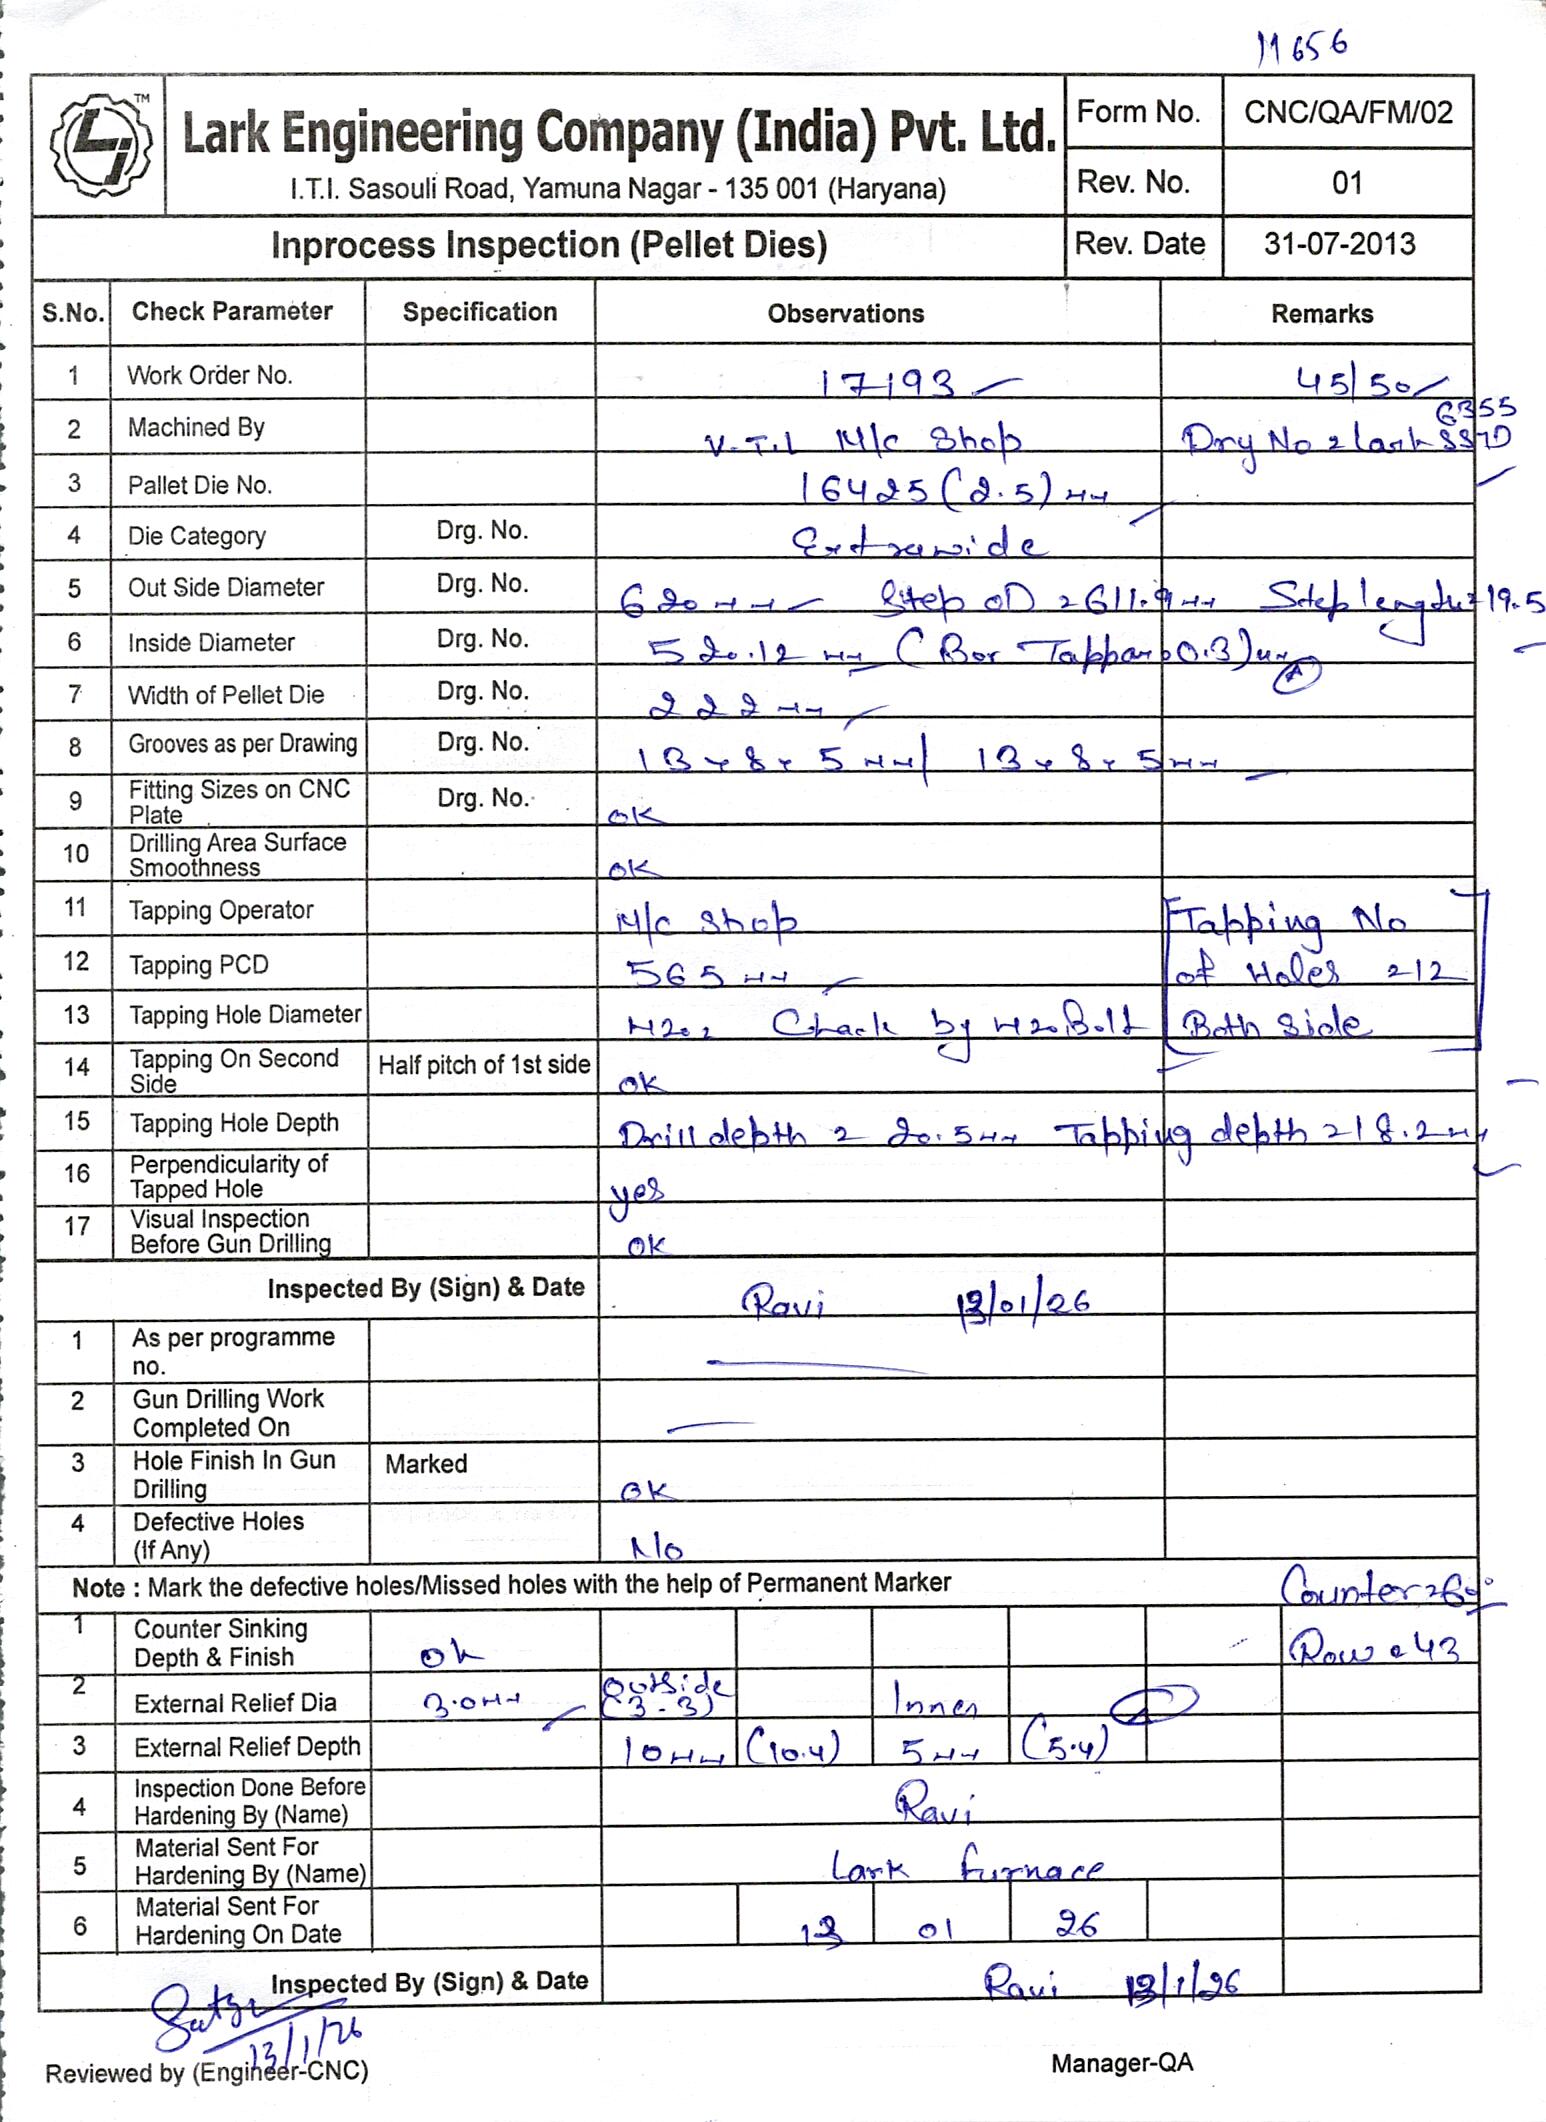 11656
LJ TM
Lark Engineering Company (India) Pvt. Ltd.
I.T.I. Sasouli Road, Yamuna Nagar - 135 001 (Haryana)
Form No. CNC/QA/FM/02
Rev. No. 01
Inprocess Inspection (Pellet Dies) Rev. Date 31-07-2013
S.No. Check Parameter Specification Observations Remarks
1 Work Order No. 17193 45/50
2 Machined By V.T.L M/c Shop Drg No = Lark 6355
3 Pallet Die No. 16425 (2.5) mm
4 Die Category Drg. No. Extrawide
5 Out Side Diameter Drg. No. 620 mm Step OD = 611.9 mm Step length = 19.5
6 Inside Diameter Drg. No. 520.12 mm (Bor Tappar 0.3) mm
7 Width of Pellet Die Drg. No. 222 mm
8 Grooves as per Drawing Drg. No. 13 x 8 x 5 mm / 13 x 8 x 5 mm
9 Fitting Sizes on CNC Plate Drg. No. OK
10 Drilling Area Surface Smoothness OK
11 Tapping Operator M/c Shop Tapping No
12 Tapping PCD 565 mm of Holes = 12
13 Tapping Hole Diameter M20 = Chack by M20 Bolt Both Side
14 Tapping On Second Side Half pitch of 1st side OK
15 Tapping Hole Depth Drill depth = 20.5 mm Tapping depth = 18.2 mm
16 Perpendicularity of Tapped Hole yes
17 Visual Inspection Before Gun Drilling OK
Inspected By (Sign) & Date Ravi 13/01/26
1 As per programme no.
2 Gun Drilling Work Completed On
3 Hole Finish In Gun Drilling Marked OK
4 Defective Holes (If Any) No
Note : Mark the defective holes/Missed holes with the help of Permanent Marker Counter = 60°
1 Counter Sinking Depth & Finish ok Row = 43
2 External Relief Dia 3.0 mm outside (3-3) Inner
3 External Relief Depth 10 mm (10.4) 5 mm (5.4)
4 Inspection Done Before Hardening By (Name) Ravi
5 Material Sent For Hardening By (Name) Lark furnace
6 Material Sent For Hardening On Date 13 01 26
Inspected By (Sign) & Date Ravi 13/1/26
13/1/26
Reviewed by (Engineer-CNC) Manager-QA